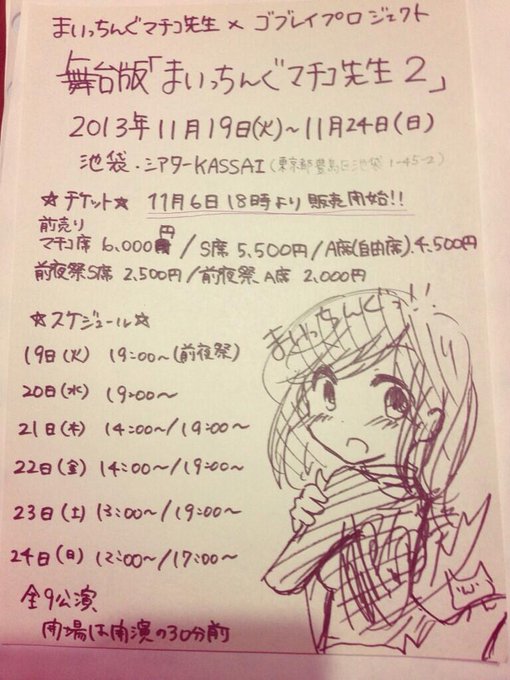 まいっちんぐマチコ先生×ゴブレイプロジェクト
舞台版「まいっちんぐマチコ先生2」
2013年11月19日(火)~11月24日(日)
池袋・シアターKASSAI(東京都豊島区池袋1-45-2)
☆チケット☆ 11月6日18時より販売開始!!
前売り
マチコ席 6,000円/S席 5,500円/A席(自由席)4,500円
前夜祭S席 2,500円/前夜祭A席 2,000円
まいっちんぐっ!!
☆スケジュール☆
19日(火) 19:00~(前夜祭)
20日(水) 19:00~
21日(木) 14:00~/19:00~
22日(金) 14:00~/19:00~
23日(土) 13:00~/19:00~
24日(日) 12:00~/17:00~
全9公演
開場は開演の30分前